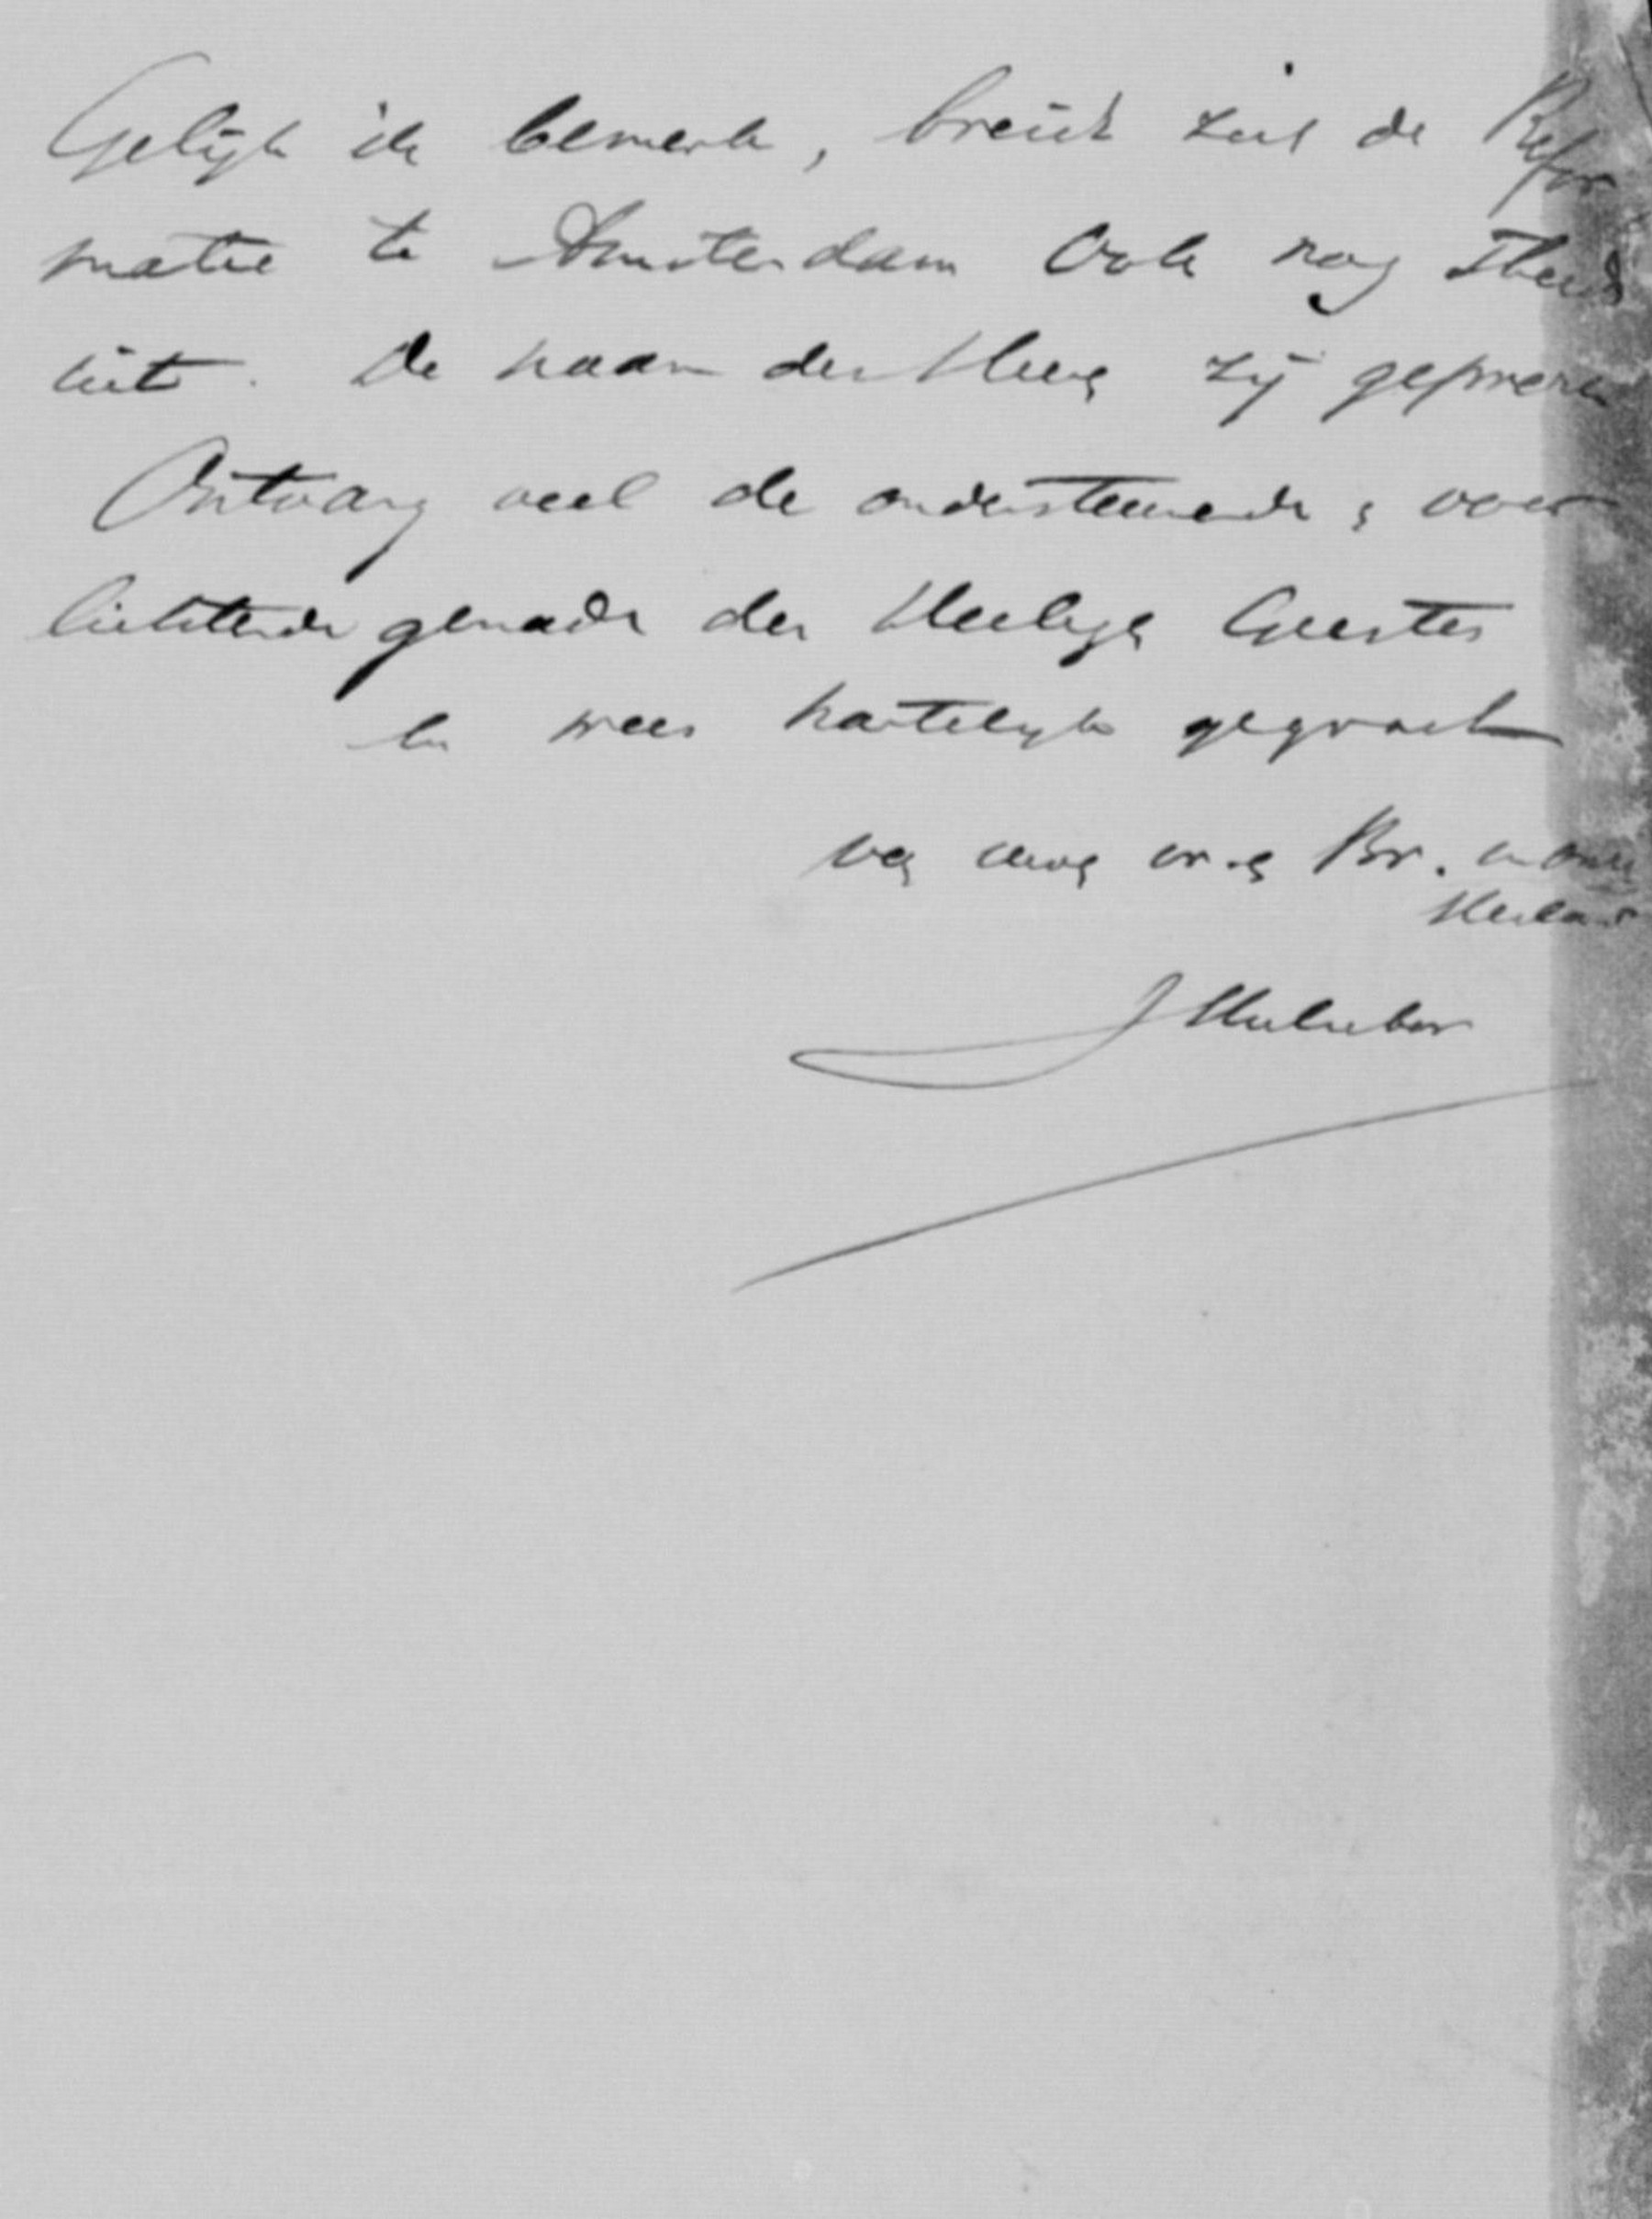 Gelijk ik bemerk, breidt zich de Refor
matie te Amsterdam ook nog steeds
uit. De naam des Heeren zij geprezen
Ontvang veel de ondersteunende & voor
lichtende genade des Heiligen Geestes
en wees hartelijk gegroet
van uwen vr. en Br. in onzen
Heiland
J Hulsebos